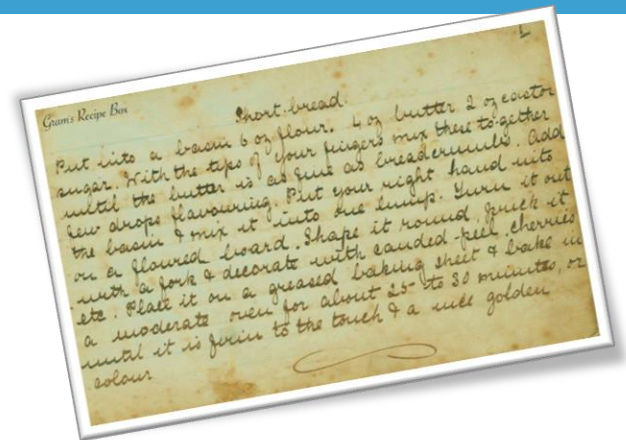 1
Gram's Recipe Box
Short-bread.
Put into a basin 6 oz flour. 4 oz butter 2 oz castor
sugar. With the tips of your fingers mix these to-gether
until the butter is as fine as breadcrumbs. Add
few drops flavouring. Put your right hand into
the basin & mix it into one lump. Turn it out
on a floured board. Shape it round, prick it
with a fork & decorate with candied-peel, cherries
etc. Place it on a greased baking sheet & bake in
a moderate oven for about 25 to 30 minutes, or
until it is firm to the touch & a nice golden
colour